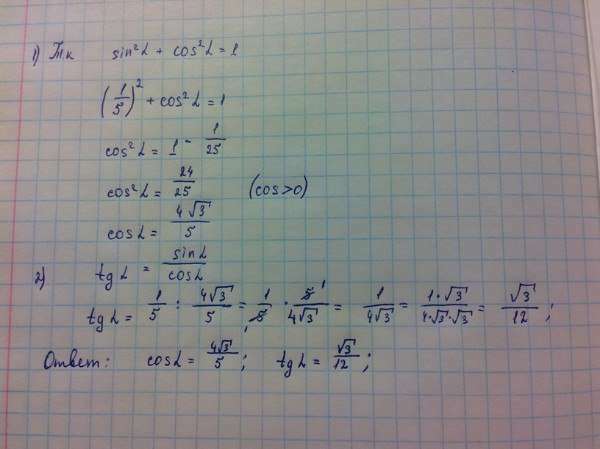 1) Т.к sin²α + cos²α = 1
(1/5)² + cos²α = 1
cos²α = 1 - 1/25
cos²α = 24/25 (cos>0)
cosα = 4√3/5
2) tgα = sinα/cosα
tgα = 1/5 : 4√3/5 = 1/5 · 5/4√3 = 1/4√3 = 1·√3/4·√3·√3 = √3/12 ;
Ответ: cosα = 4√3/5 ; tgα = √3/12 ;